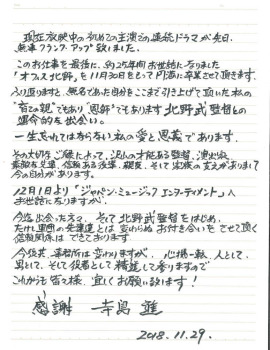 現在放映中の初めての主演での連続ドラマが先日、
無事クランク・アップ致しました。
このお仕事を最後に、約25年間お世話になりました
「オフィス北野」を11月30日をもって円満に卒業させて頂きます。
ふり返りますと、無名であった自分をここまで引き上げて頂いた私の
"育ての親"でもあり"恩師"でもあります北野武監督との
運命的な出会い。
一生忘れてはならない私の愛と恩義であります。
その大切なご縁によって、沢山の才能ある監督、演出家、
素敵な先輩、信頼ある後輩、親友、そして家族の支えがありまして
今の自分があります。
12月1日より「ジャパン・ミュージックエンターテインメント」へ
お世話になりますが、
今迄出会った方々、そして北野武監督をはじめ、
たけし軍団の先輩達とは変わらぬお付き合いをさせて頂く
信頼関係はできております
今後共、事務所は変わりますが、心機一転、人として、
男として、そして役者として精進して参りますので
これからも皆々様、宜しくお願い致します!
感謝 寺島 進
2018.11.29.